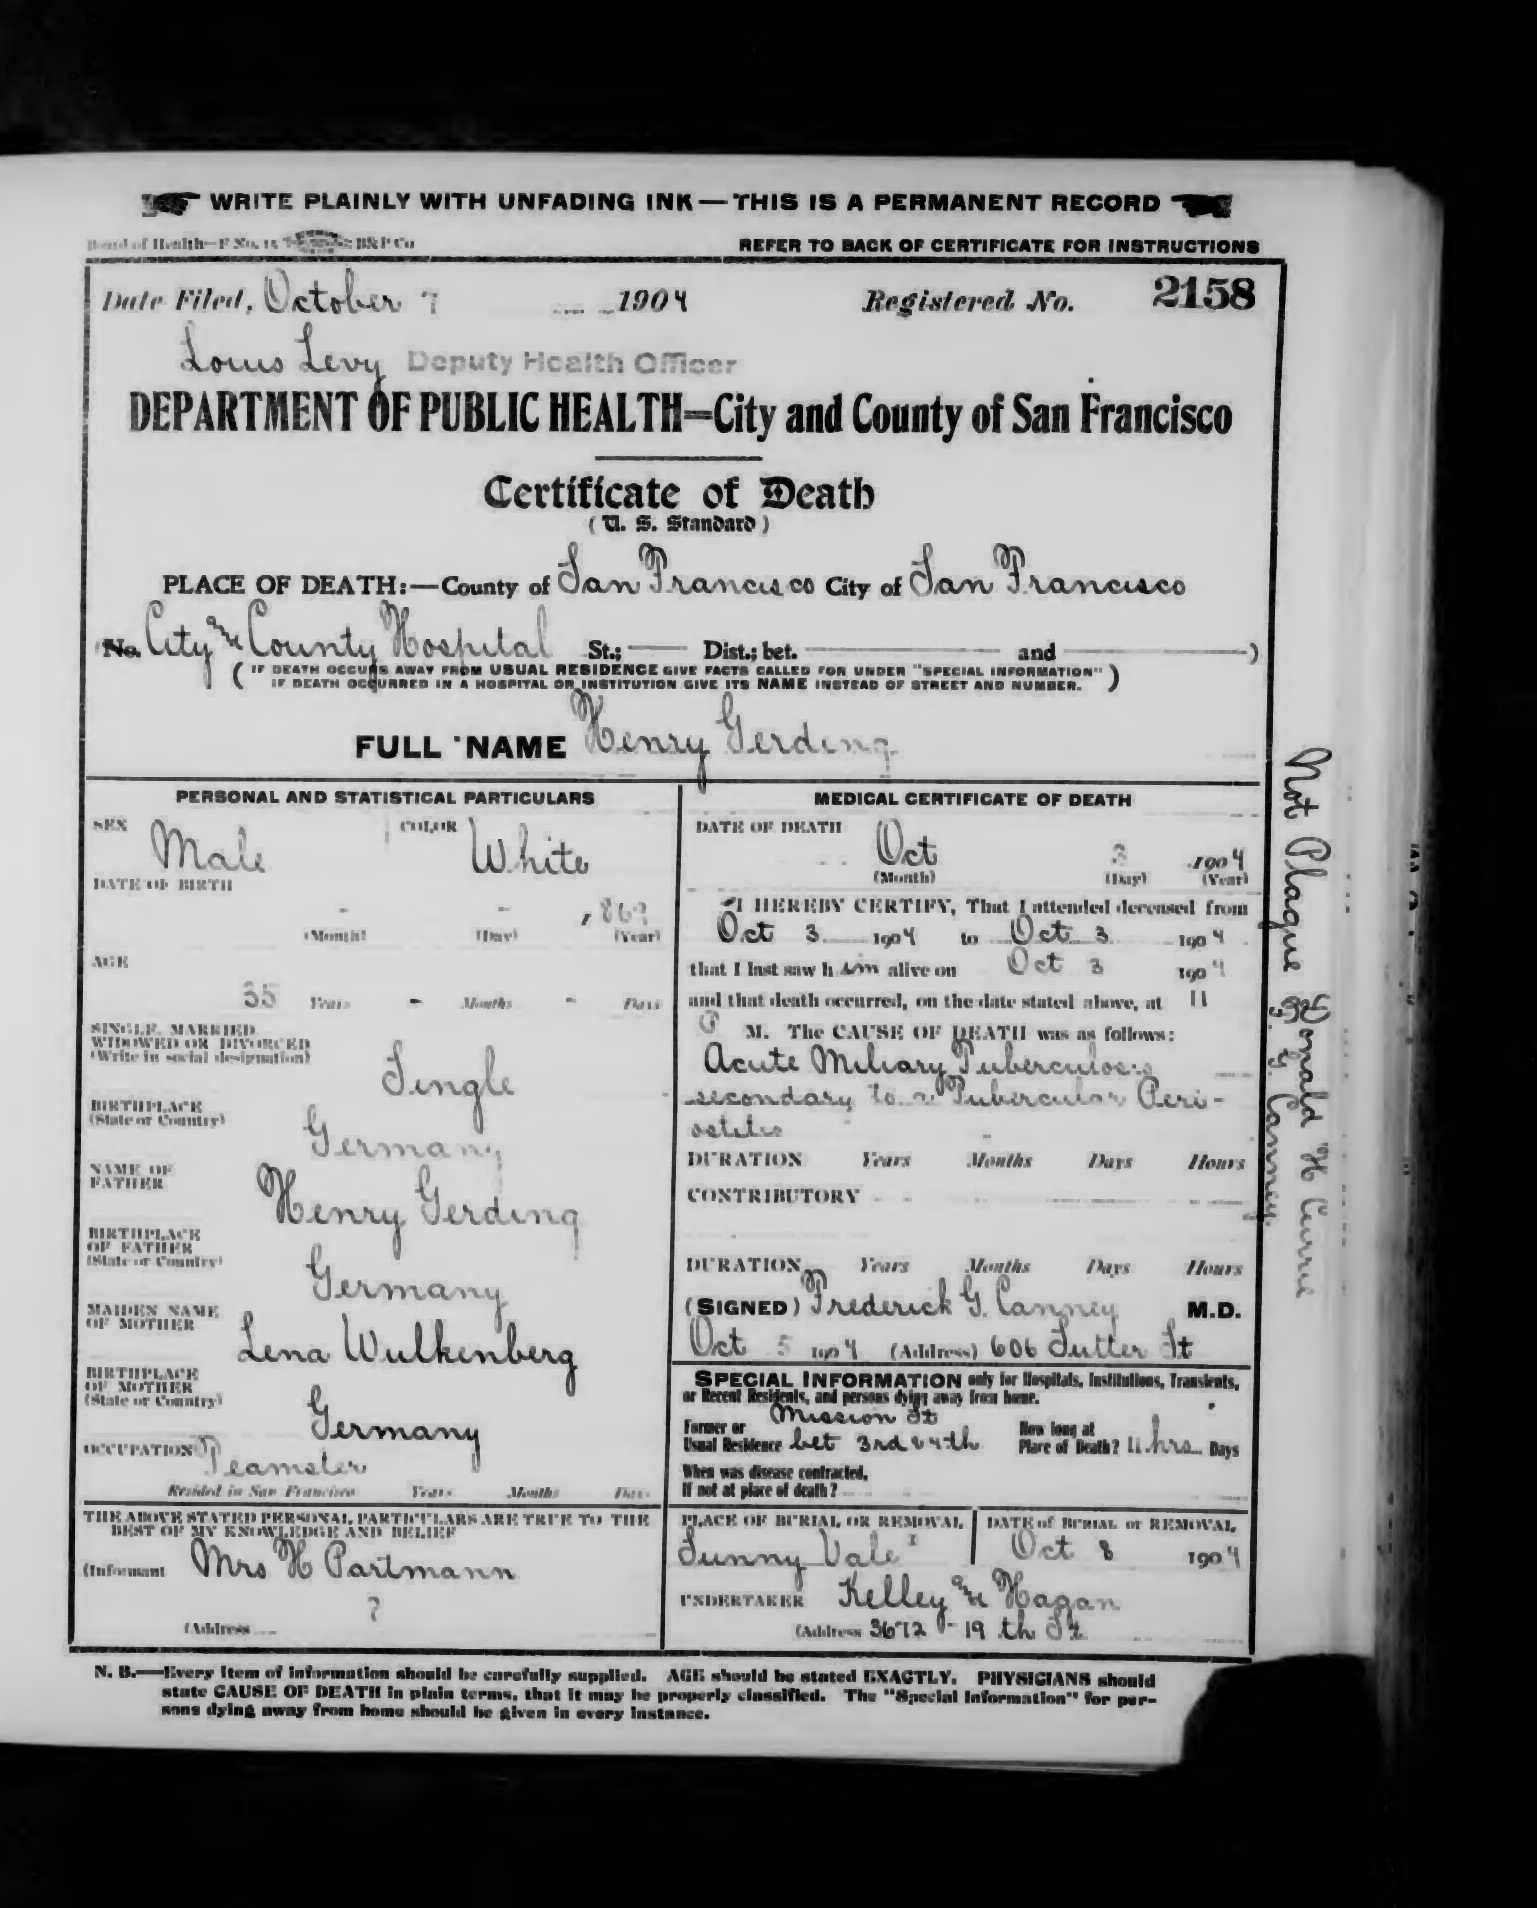 WRITE PLAINLY WITH UNFADING INK—THIS IS A PERMANENT RECORD
Board of Health—F No. 15 B&P Co
REFER TO BACK OF CERTIFICATE FOR INSTRUCTIONS
Date Filed, October 7 1904 Registered No. 2158
Louis Levy Deputy Health Officer
DEPARTMENT OF PUBLIC HEALTH=City and County of San Francisco
Certificate of Death
(U. S. Standard)
PLACE OF DEATH:—County of San Francisco City of San Francisco
(No. City and County Hospital St.; —— Dist.; bet. —— and ——)
( IF DEATH OCCURS AWAY FROM USUAL RESIDENCE GIVE FACTS CALLED FOR UNDER "SPECIAL INFORMATION"
IF DEATH OCCURRED IN A HOSPITAL OR INSTITUTION GIVE ITS NAME INSTEAD OF STREET AND NUMBER. )
FULL NAME Henry Gerding
PERSONAL AND STATISTICAL PARTICULARS
SEX Male COLOR White
DATE OF BIRTH
- - , 869
(Month) (Day) (Year)
AGE
35 Years - Months - Days
SINGLE, MARRIED,
WIDOWED OR DIVORCED
(Write in social designation)
Single
BIRTHPLACE
(State or Country)
Germany
NAME OF
FATHER
Henry Gerding
BIRTHPLACE
OF FATHER
(State or Country)
Germany
MAIDEN NAME
OF MOTHER
Lena Wulkenberg
BIRTHPLACE
OF MOTHER
(State or Country)
Germany
OCCUPATION Teamster
Resided in San Francisco Years Months Days
THE ABOVE STATED PERSONAL PARTICULARS ARE TRUE TO THE
BEST OF MY KNOWLEDGE AND BELIEF
(Informant Mrs H Partmann
(Address ?
MEDICAL CERTIFICATE OF DEATH
DATE OF DEATH
Oct 3 1904
(Month) (Day) (Year)
I HEREBY CERTIFY, That I attended deceased from
Oct 3 1904 to Oct 3 1904
that I last saw h im alive on Oct 3 1904
and that death occurred, on the date stated above, at 11
P M. The CAUSE OF DEATH was as follows:
Acute Miliary Tuberculosis
secondary to a Tubercular Peri-
ostitis
DURATION Years Months Days Hours
CONTRIBUTORY
DURATION Years Months Days Hours
(SIGNED) Frederick G. Canney M.D.
Oct 5 1904 (Address) 606 Sutter St
SPECIAL INFORMATION only for Hospitals, Institutions, Transients,
or Recent Residents, and persons dying away from home.
Former or
Usual Residence Mission St
bet 3rd & 4th
How long at
Place of Death? 11 hrs Days
When was disease contracted,
If not at place of death?
PLACE OF BURIAL OR REMOVAL
Sunny Vale
DATE of BURIAL or REMOVAL
Oct 8 1904
UNDERTAKER Kelley and Hagan
(Address 3672 - 19 th St
N. B.—Every item of information should be carefully supplied. AGE should be stated EXACTLY. PHYSICIANS should
state CAUSE OF DEATH in plain terms, that it may be properly classified. The "Special Information" for per-
sons dying away from home should be given in every instance.
Not Plague Donald H Currie
F. G. Canney.